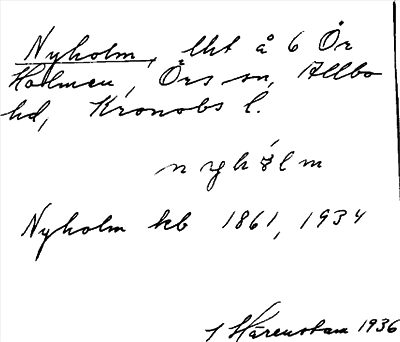 Nyholm, lht å 6 Ör
Holmen, Örs sn, Allbo
hd, Kronobs l.
nyhòlm
Nyholm kb 1861, 1934
Härenstam 1936